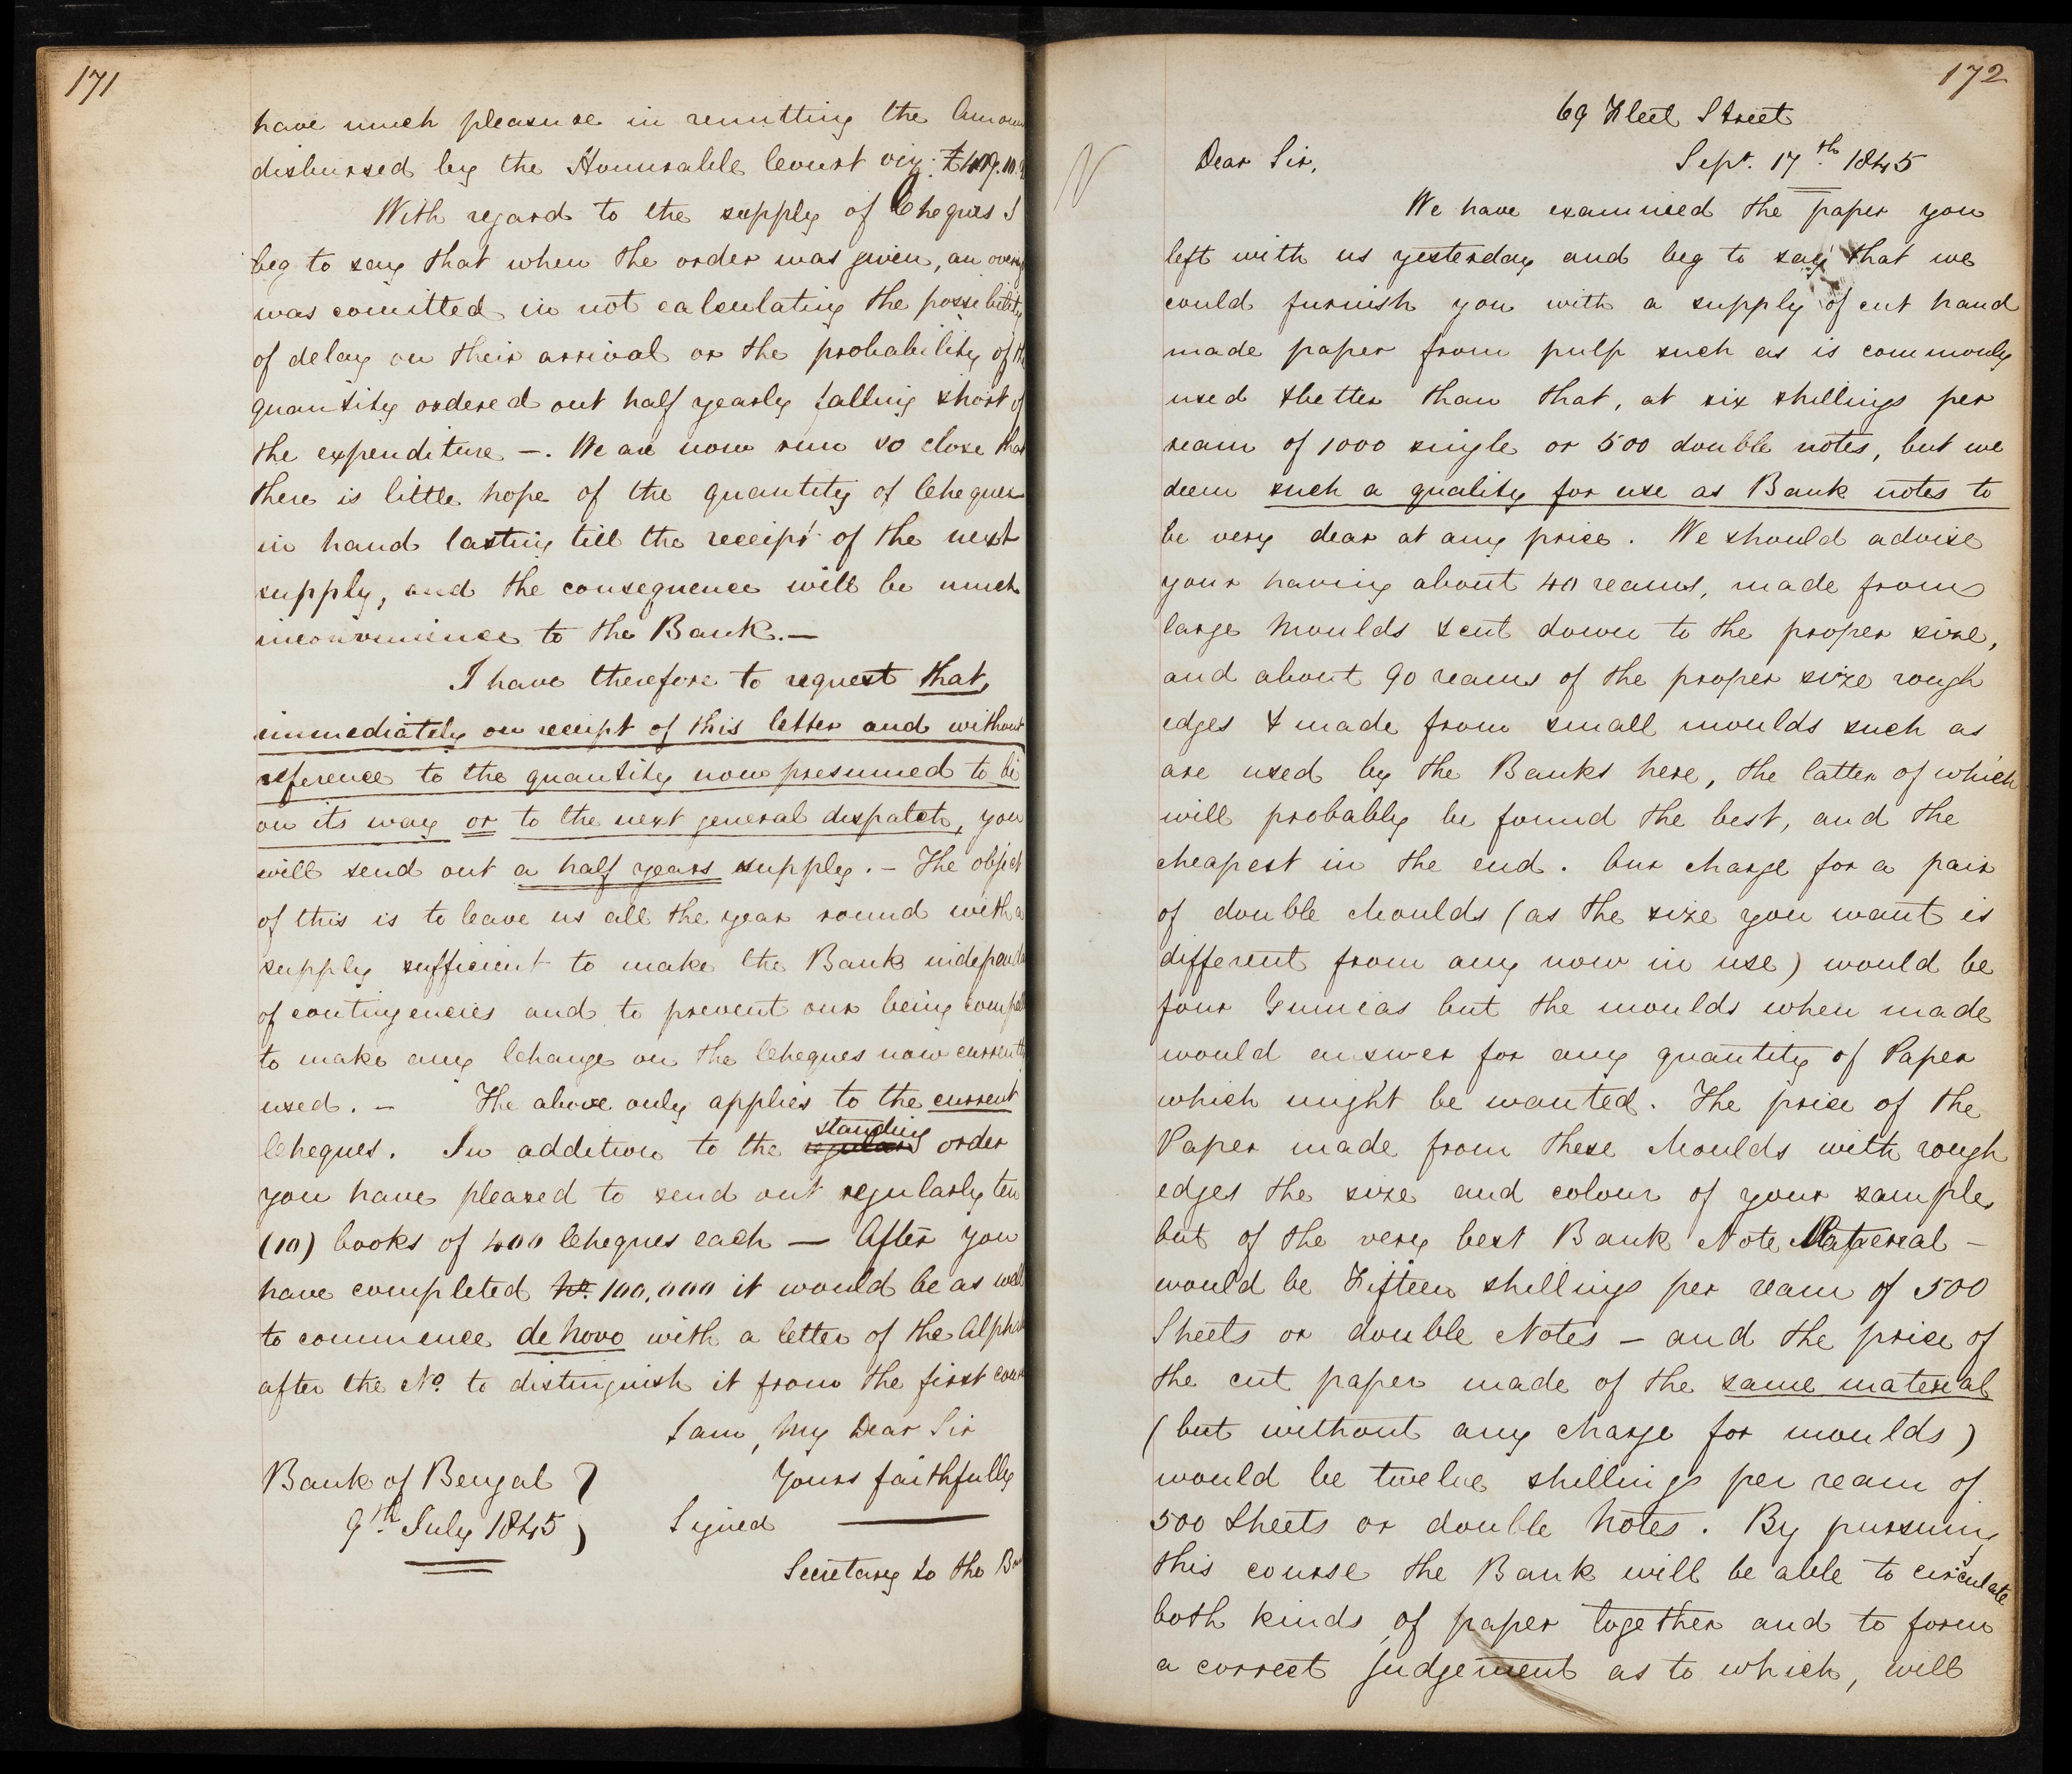 171
have much pleasure in remitting the Amoun
disbursed by the Honurable Court viz:
With regard to the supply of Cheques I
beg to say that when the order was given, an overs
was comitted in not calculating the possibility
of delay on their arrival or the probability of th
quantity ordered out half yearly falling short of
the expenditure —. We are now run so close that
there is little hope of the quantity of Cheques
in hand lasting till the receipt of the next
supply, and the consequence will be much
inconvenience to the Bank.—
I have therefore to request that,
immediately on receipt of this letter and without
reference to the quantity now presumed to be
on its way or to the next general dispatch, you
will send out a half years supply. — The object
of this is to leave us all the year round with a
supply sufficient to make the Bank independ
of contingencies and to prevent our being compell
to make any Change on the Cheques now currently
used. — The above only applies to the current
Cheques. In addition to the regular standing order
you have pleased to send out regularly ten
(10) books of 400 Cheques each — After you
have completed No. 100,000 it would be as well
to commence de novo with a letter of the Alpha
after the No. to distinguish it from the first
I am, My Dear Sir
Yours faithfully
Bank of Bengal
9th July 1845
Signed
Secretary to the Ban
172
69 Fleet Street
Sept. 17th 1845
Dear Sir,
We have examined the paper you
left with us yesterday and beg to say that we
could furnish you with a supply of cut hand
made paper from pulp such as is commonly
used & better than that, at six shillings per
ream of 1000 single or 500 double notes, but we
deem such a quality for use as Bank notes to
be very dear at any price. We should advise
your having about 40 reams, made from
large Moulds & cut down to the proper size,
and about 90 reams of the proper size rough
edges & made from small moulds such as
are used by the Banks here, the latter of which
will probably be found the best, and the
cheapest in the end. Our charge for a pair
of double Moulds (as the size you want is
different from any now in use) would be
four Guineas but the moulds when made
would answer for any quantity of Paper
which might be wanted. The price of the
Paper made from these Moulds with rough
edges the size and colour of your sample
but of the very best Bank Note Material —
would be Fifteen shillings per ream of 500
Sheets or double Notes — and the price of
the cut paper made of the same material
(but without any charge for moulds)
would be twelve shillings per ream of
500 Sheets or double Notes. By pursuing
this course the Bank will be able to circulate
both kinds of paper together and to form
a correct judgement as to which, will